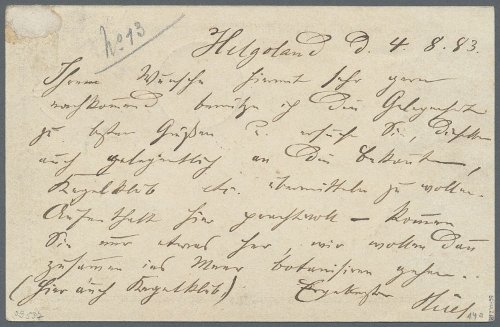 No 13
Helgoland d. 4. 8. 83.
Ihrem Wunsche hiermit sehr gern
nachkommend benutze ich die Gelegenheit
zu besten Grüßen u. ersuche Sie, dieselben
auch gelegentlich an die Bekannten,
Kegelklub etc. übermitteln zu wollen.
Aufenthalt hier prachtvoll – kommen
Sie nur etwas her, wir wollen dann
zusammen ins Meer botanisiren gehen.
(hier auch Kegelklub) Ergebenster